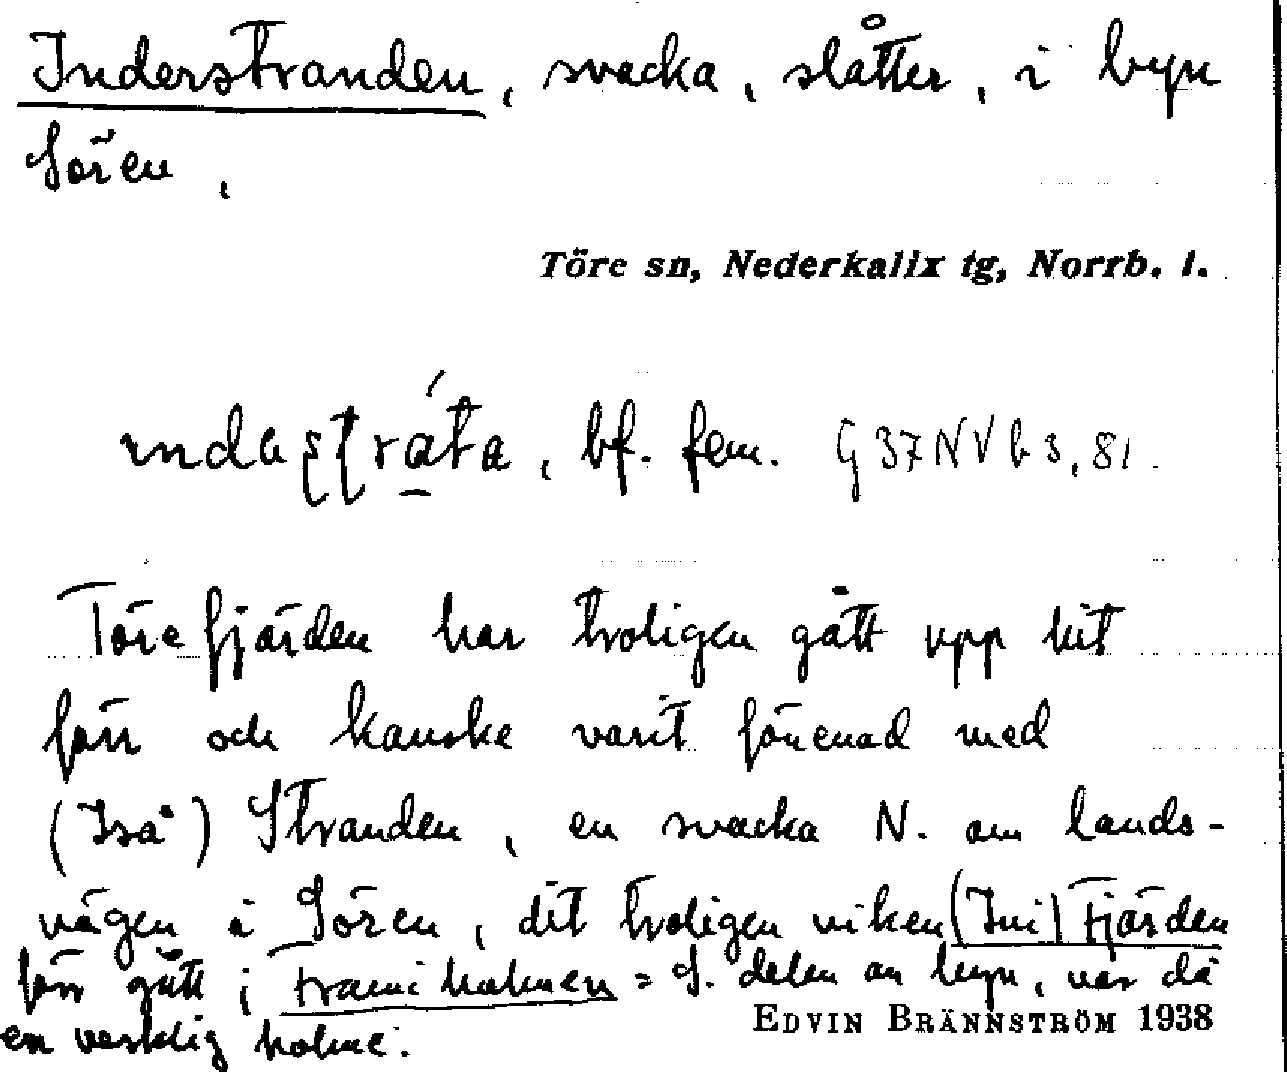 Inderstranden, svacka, slåtter, i byn
Sören,
Töre sn, Nederkalix tg, Norrb. l.
bf. fem. G37NVb3,81.
Törefjärden har troligen gått upp hit
förr och kanske varit förenad med
(Iså) Stranden, en svacka N. om lands-
vägen i Sören, dit troligen viken (Ini) Fjärden
förr gått; Frami holmen = S. delen av byn, var då
en verklig holme.
EDVIN BRÄNNSTRÖM 1938